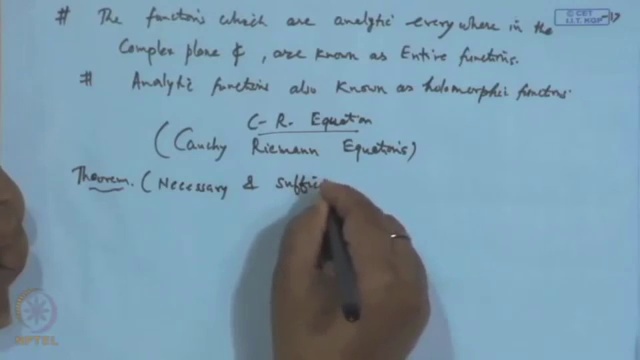 # The functions which are analytic everywhere in the
Complex plane ₵, are known as Entire functions.
# Analytic functions also known as holomorphic functions.
C-R. Equation
(Cauchy Riemann Equations)
Theorem. (Necessary & suffici
© CET
I.I.T. KGP
NPTEL